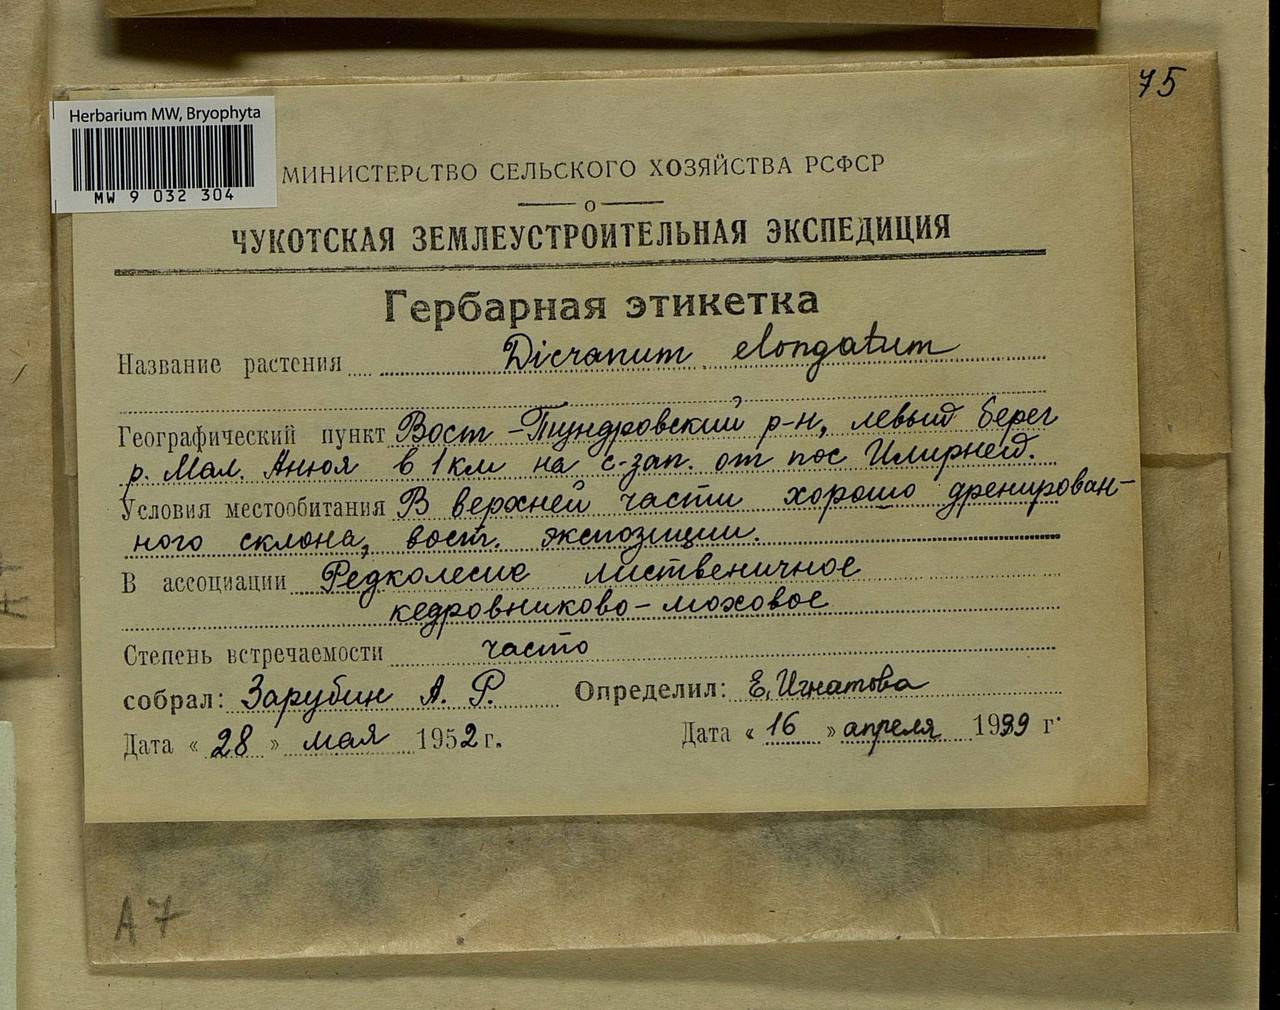 75
Herbarium MW, Bryophyta
MW 9 032 304
МИНИСТЕРСТВО СЕЛЬСКОГО ХОЗЯЙСТВА РСФСР
ЧУКОТСКАЯ ЗЕМЛЕУСТРОИТЕЛЬНАЯ ЭКСПЕДИЦИЯ
Гербарная этикетка
Название растения Dicranum elongatum
Географический пункт Вост-Тундровский р-н, левый берег
р. Мал. Анюя в 1 км на с-зап. от пос Илирней.
Условия местообитания В верхней части хорошо дренирован-
ного склона, вост. экспозиции.
В ассоциации Редколесие лиственичное
кедровниково-моховое
Степень встречаемости часто
собрал: Зарубин А. Р. Определил: Е. Игнатова
Дата «28» мая 1952 г. Дата «16» апреля 1999 г.
А 7